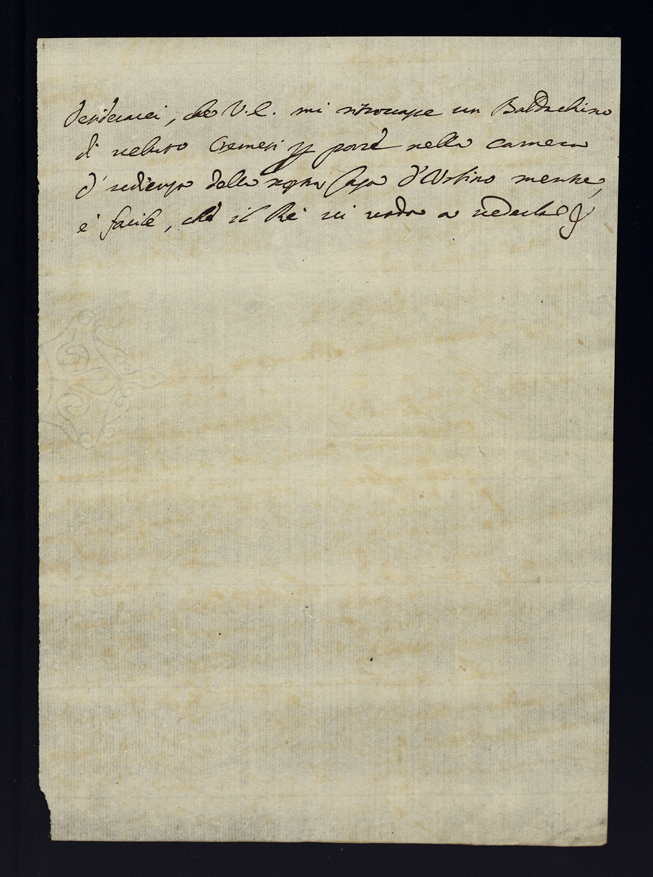 desiderarei, che V.E. mi ritrovasse un Baldachino
di veluto Cremesi p porre nella camera
d'udienza della nostra Casa d'Urbino mentre,
è facile, che il Rè vi vada a vederla